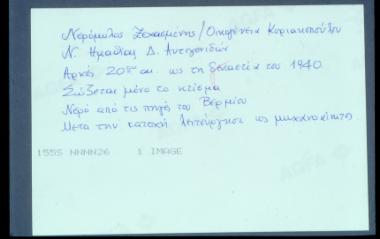 Νερόμυλος Ξεχασμένης/Οικογένεια Κυριακοπούλου
Ν. Ημαθίας Δ. Αντιγονιδών
Αρχές 20ου αι. ως τη δεκαετία του 1940.
Σώζεται μόνο το κτίσμα
Νερό από τις πηγές του Βερμίου
Μετά την κατοχή λειτούργησε ως μηχανοκίνητος
1555 NNNN26 1 IMAGE